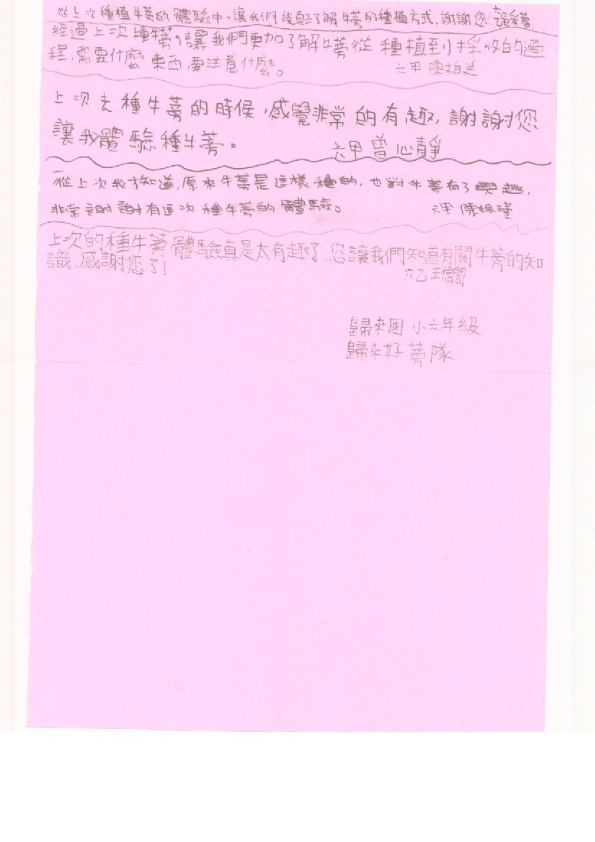 從上次種植牛蒡的體驗中,讓我們認真了解牛蒡的種植方式,謝謝您
經過上次種牛蒡,讓我們更加了解牛蒡從種植到採收的過
程,需要什麼東西,要注意什麼。 六甲 陳柏
上次去種牛蒡的時候,感覺非常的有趣,謝謝您
讓我體驗種牛蒡。 六甲 曾心靜
從上次我才知道,原來牛蒡是這樣種的,也對牛蒡有了興趣,
非常謝謝有這次種牛蒡的體驗。 六甲 陳
上次的種牛蒡體驗真是太有趣了,您讓我們知道有關牛蒡的知
識,感謝您了! 六乙 王
歸來國小六年級
歸來好蒡隊